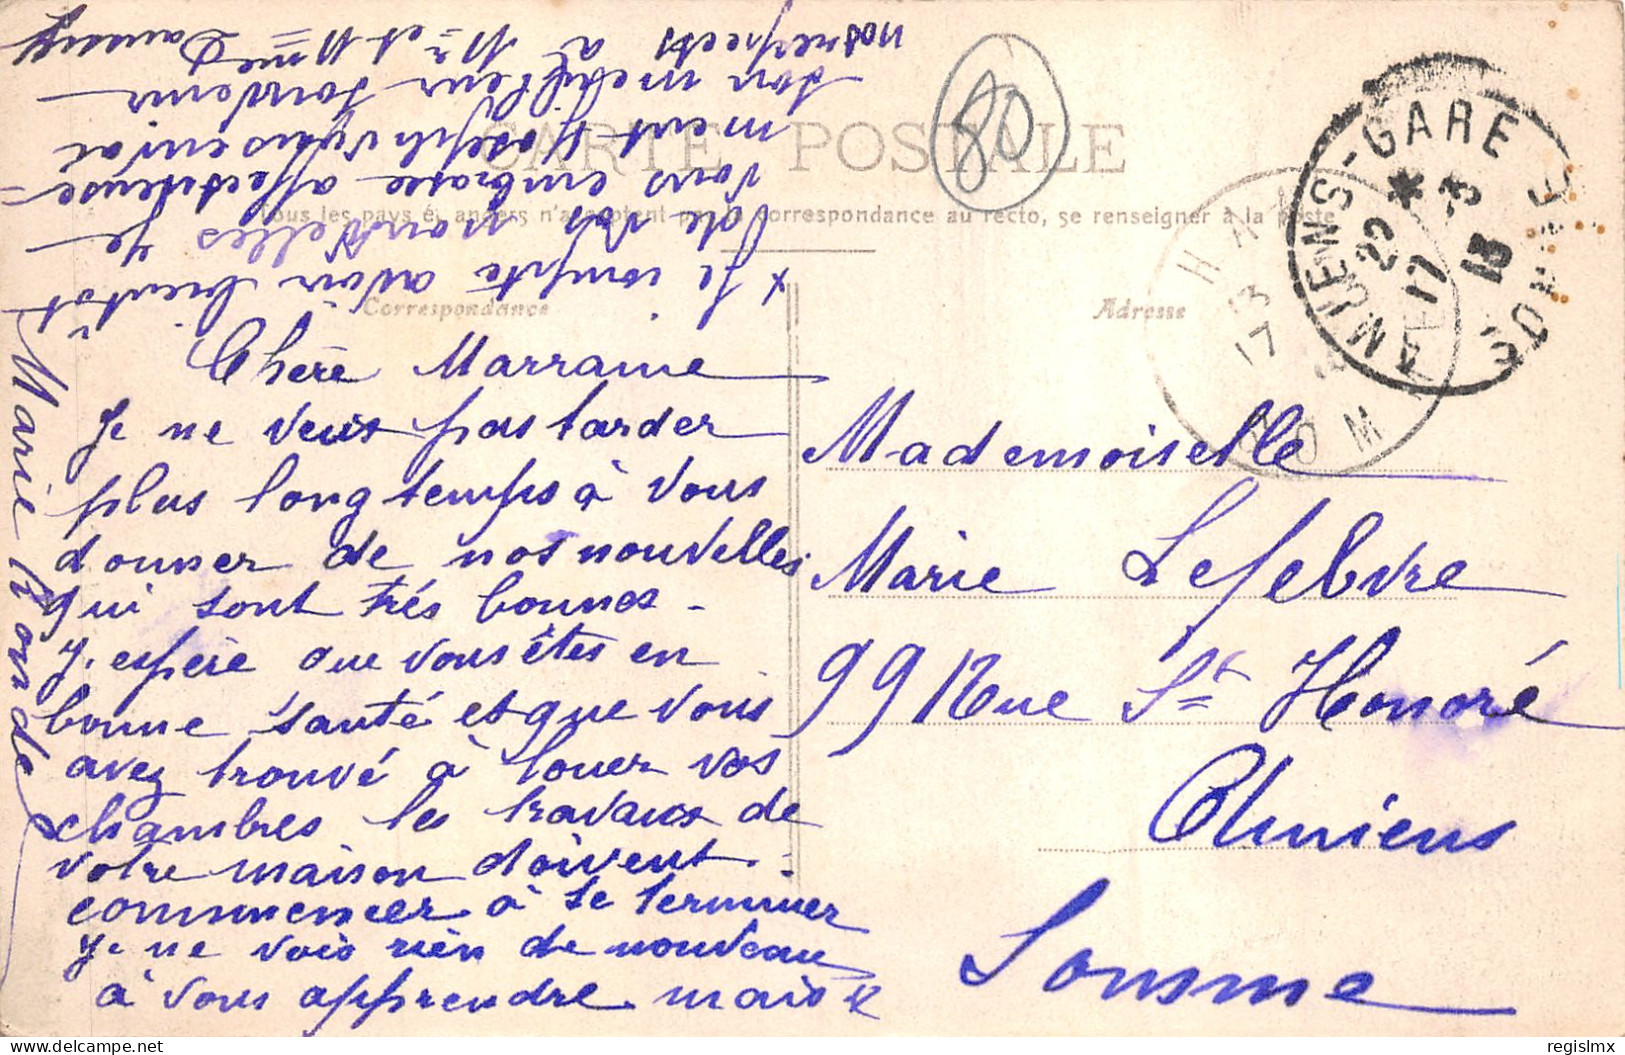 CARTE POSTALE
80
Tous les pays étrangers n'acceptent pas la correspondance au recto, se renseigner à la poste
Correspondance
Adresse
AMIENS-GARE
*
22 -3
17 13
SOMME
HA
13
17
SOM
Chère Marraine
Je ne veux pas tarder
plus longtemps à vous
donner de nos nouvelles
qui sont très bonnes -
J'espère que vous êtes en
bonne santé et que vous
avez trouvé à louer vos
chambres les travaux de
votre maison doivent
commencer à se terminer
Je ne vois rien de nouveau
à vous apprendre mais x
x Je compte avoir bientôt
de vos nouvelles Je
vous embrasse affectueuse=
ment Joseph vous envoie
son meilleur souvenir
nos respects à Mr et Mme
Marie Ronde
Mademoiselle
Marie Lefebvre
99 Rue St Honoré
Amiens
Somme
delcampe.net
regislmx